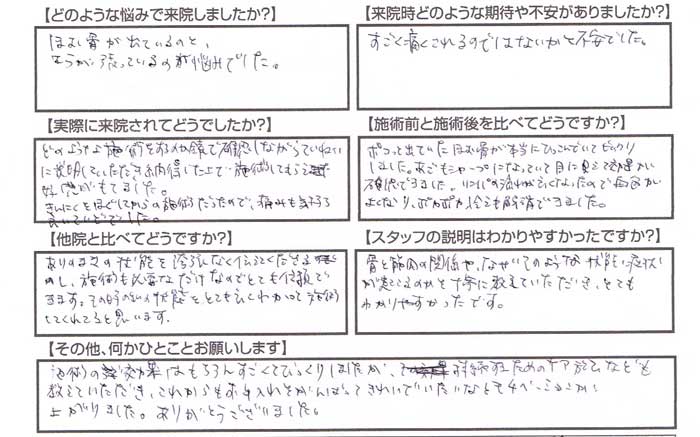 【どのような悩みで来院しましたか?】
ほほ骨が出ているのと、
えらが張っているのが悩みでした。
【来院時どのような期待や不安がありましたか?】
すごく痛くされるのではないかと不安でした。
【実際に来院されてどうでしたか?】
どのような施術をするか鏡で確認しながらていねい
に説明していただき納得した上で施術してもらえ
好感がもてました。
きんにくをほぐしてからの施術だったので、痛みも
【施術前と施術後を比べてどうですか?】
ポコっと出ていたほほ骨が本当にひっこんでいてビックリ
しました。あごもシャープになっていて目に見えて効果が
確認できました。リンパの流れがよくなったので血色が
よくなり、ポカポカ冷えも解消できました。
【他院と比べてどうですか?】
ありのままの状態を誇張なく伝えてくださる
し、施術も必要なだけなのでとても信頼で
きます。その時の状態をとてもよくわかって施術
してくれてると思います。
【スタッフの説明はわかりやすかったですか?】
骨と筋肉の関係や、なぜそのような状態、症状
が起こるのかを丁寧に教えていただき、とても
わかりやすかったです。
【その他、何かひとことお願いします】
施術の効果はもちろんすごくてびっくりしましたが、持続するためのケア方法なども
教えていただき、これからもお手入れをがんばってきれいでいたいなと
上がりました。ありがとうございました。